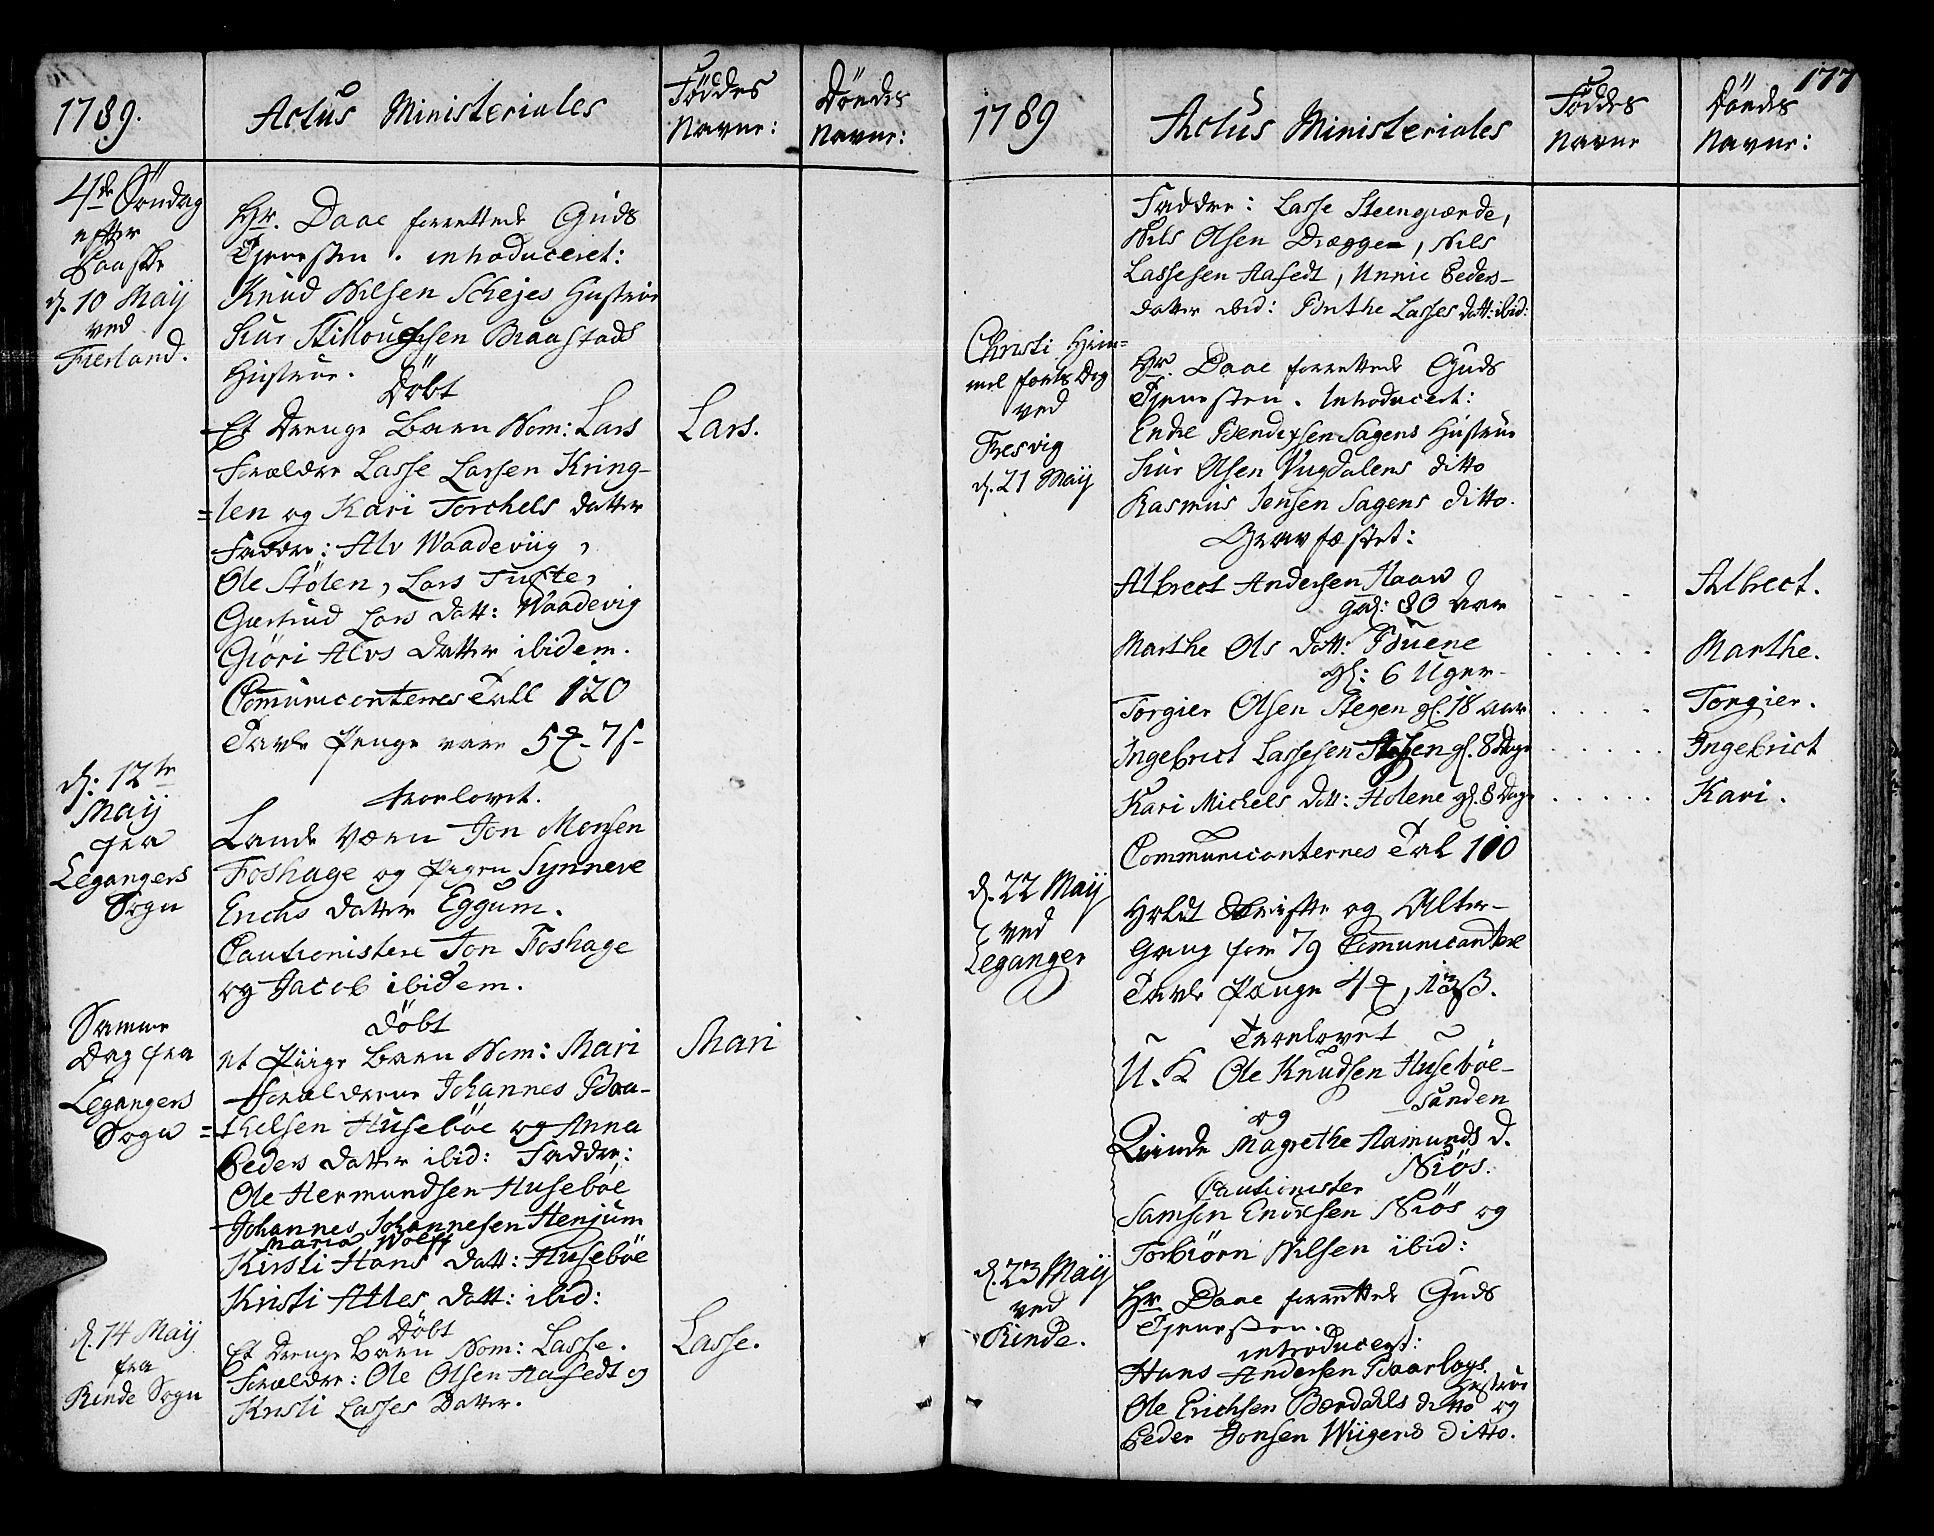 1789.
Actus Ministeriales
Føddes
Navne:
Døedes
Navne:
4de Søndag
efter
Paaske
d. 10 Maij
ved
Fierland.
Hr. Daae forrettede Guds
Tjenesten. introduceret:
Knud Nilsen Schejes Hustrue
Iver
Hustrue.
Døbt
Et Drenge Barn Nom: Lars
Lars.
Forældre Lasse Larsen Kring-
=len og Kari Torchels datter
Faddre: Alv Waadeviig,
Ole Stølen, Lars Tufte,
Giertrud Lars datt: Waadevig
Giöri Alvs datter ibidem.
Comunicanternes Tall 120
Tavle Penge vare 5
d: 12te
Maij
fra
Legangers
Sogn
Trorlovet.
Lande Værn Jon Monsen
Foshage og Pigen Synneve
Erichs datter Eggum.
Cautionistere Jon Foshage
og Jacob ibidem.
Samme
Dag fra
Legangers
Sogn
Döbt
et Piige Barn Nom: Mari
Mari
Forælderne Johannes Baa-
=thelsen Husebøe og Anna
Peders datter ibid: Faddre:
Ole Hermundsen Husebøe
Johannes Johannesen Henjum
Maria Wolff
Kirsti Hans datt: Husebøe
Kristi Atles datt: ibid:
d. 14 Maij
fra
Rinde Sogn
Döbt
Et Drenge Barn Nom: Lasse.
Lasse.
Forældre: Ole Olsen Aafedt og
Kristi Lasses Datter.
177
1789
Actus Ministeriales
Føddes
Navne
Döedes
Navne:
Faddre: Lasse Steengierde,
Nils Olsen Dregge, Nils
Lassesen Aafedt, Unnie Peders-
datter ibid: Brithe Lasses datt: ibid:
Christi Him=
mel farts Dag
ved
Fresvig
d. 21 Maij
Hr. Daae forrettede Guds
Tjenesten. Introducert:
Endre Bendixsen Sagens Hustrue
Iver Olsen Vugdalens ditto
Rasmus Jensen Sagens ditto.
Gravfæstet:
Albrect Andersen Haaw
gl: 80 Aar
Albrect.
Marthe Ols datt: Buene
gl: 6 Uger.
Marthe.
Torgier Olsen Stegen gl. 18 aar
Torgier.
Ingebrict Lassesen gl. 8 Dage
Ingebrict
Kari Michels datt: Holene gl. 8 Dage
Kari.
Communicanternes Tal 100
d. 22 Maij
ved
Leganger
Holdt Skrifte og Alter-
Gang for 79 Comunicantere
Tavle Penge 4
~ Trorlovet ~
U. K Ole Knudsen Husebøe-
sanden
og
Qvinde Magrethe Aamunds d.
Niøs.
Cautionister
Samsin Endresen Niøs og
Torbiørn Nilsen ibid:
d. 23 Maij
ved
Rinde.
Hr Daae forrettede Guds
Tjenesten.
introducert:
Hans Andersen Baarloys
Hustrue
Ole Erichsen Bærdahls ditto og
Peder Jonsen Wiigens Ditto.